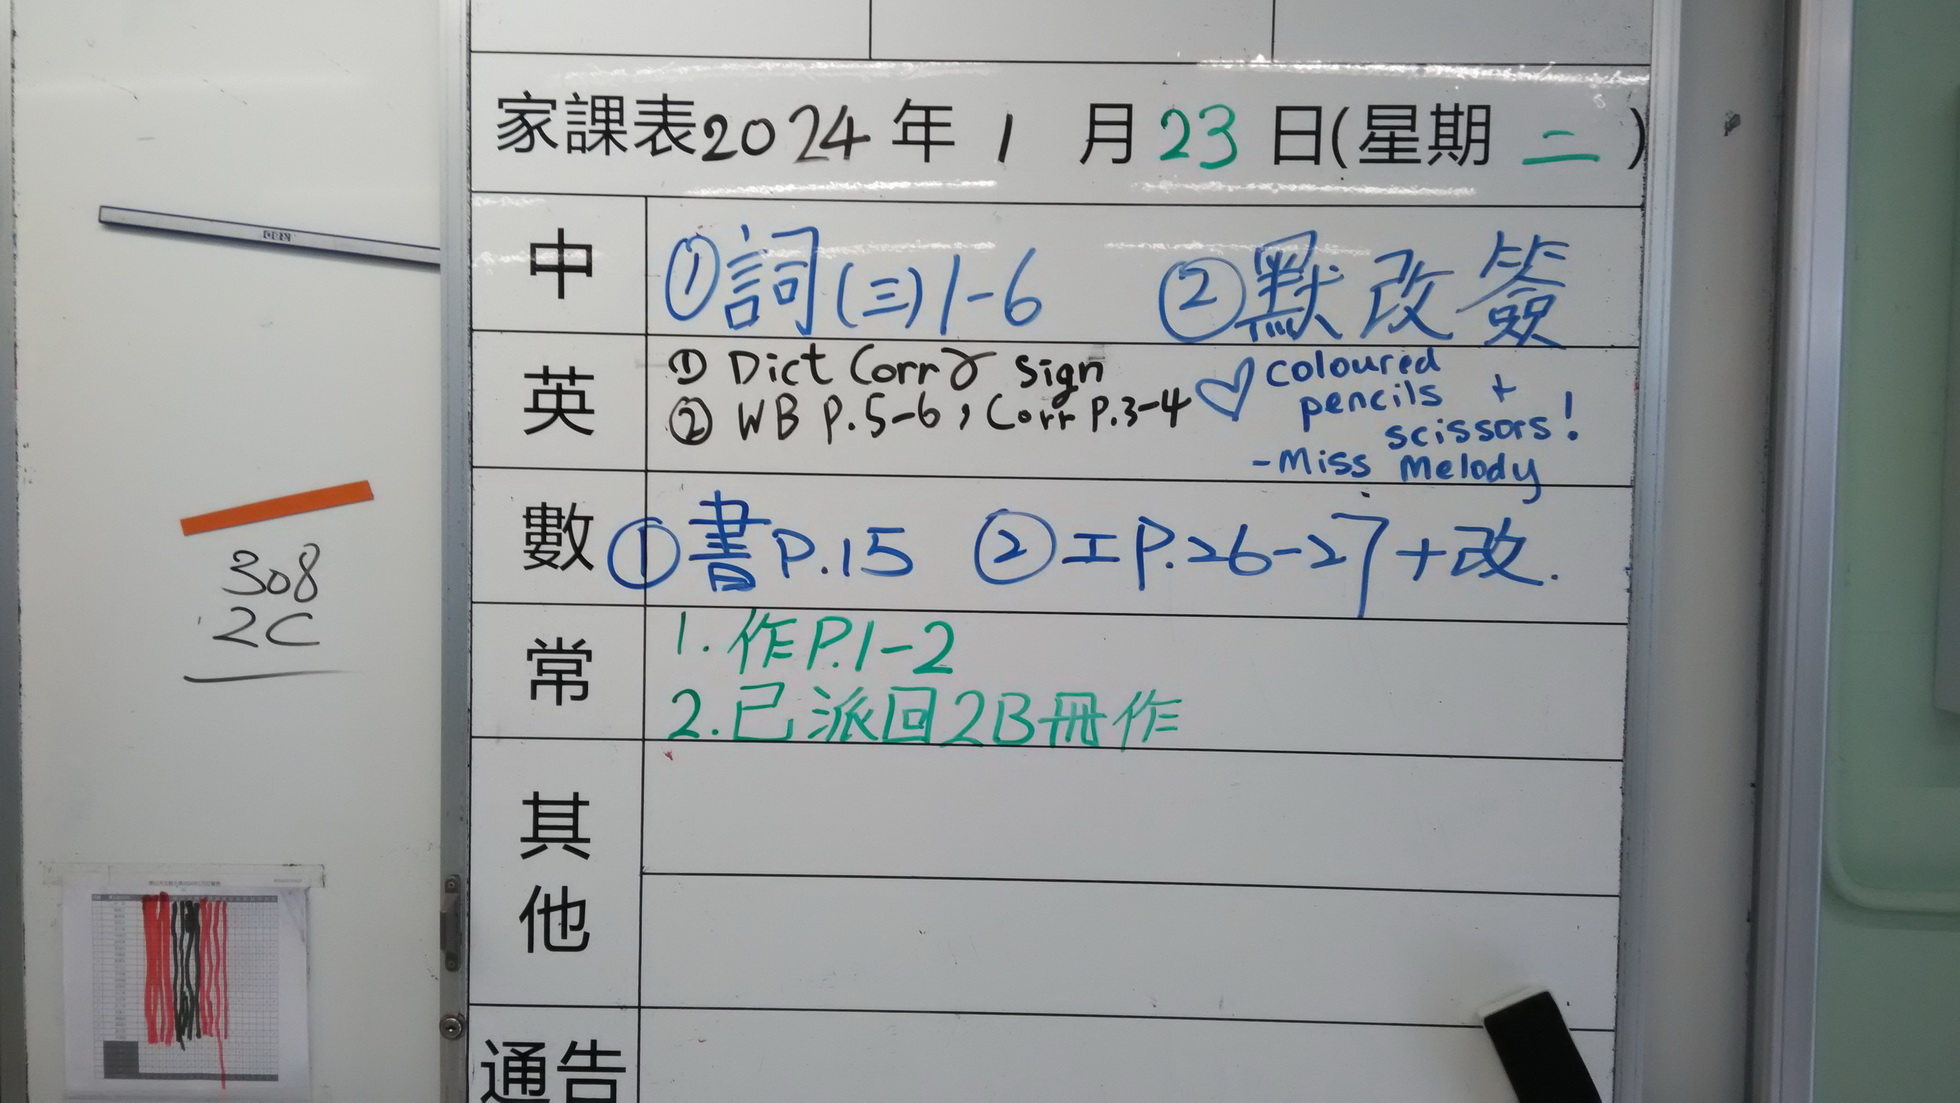 家課表2024年1月23日(星期二)
中
①詞(三)1-6 ②默改簽
英
① Dict Corr & sign
② WB P.5-6, Corr P.3-4
♡ coloured
pencils +
scissors!
- Miss Melody
數
①書P.15 ②工P.26-27+改.
常
1.作P.1-2
2.已派回2B冊作
其
他
通告
308
2C